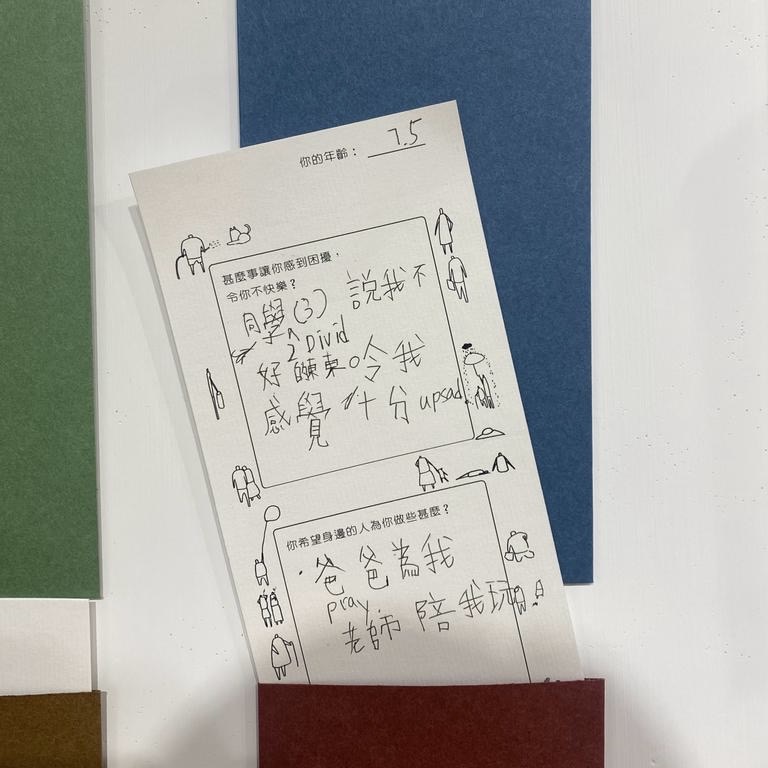 你的年齡： 7.5
甚麼事讓你感到困擾，
令你不快樂？
同學(3) 說我不
2 Divid
好 東。令我
感覺十分 upsad
你希望身邊的人為你做些甚麼？
爸爸為我
pray.
老師 陪我玩